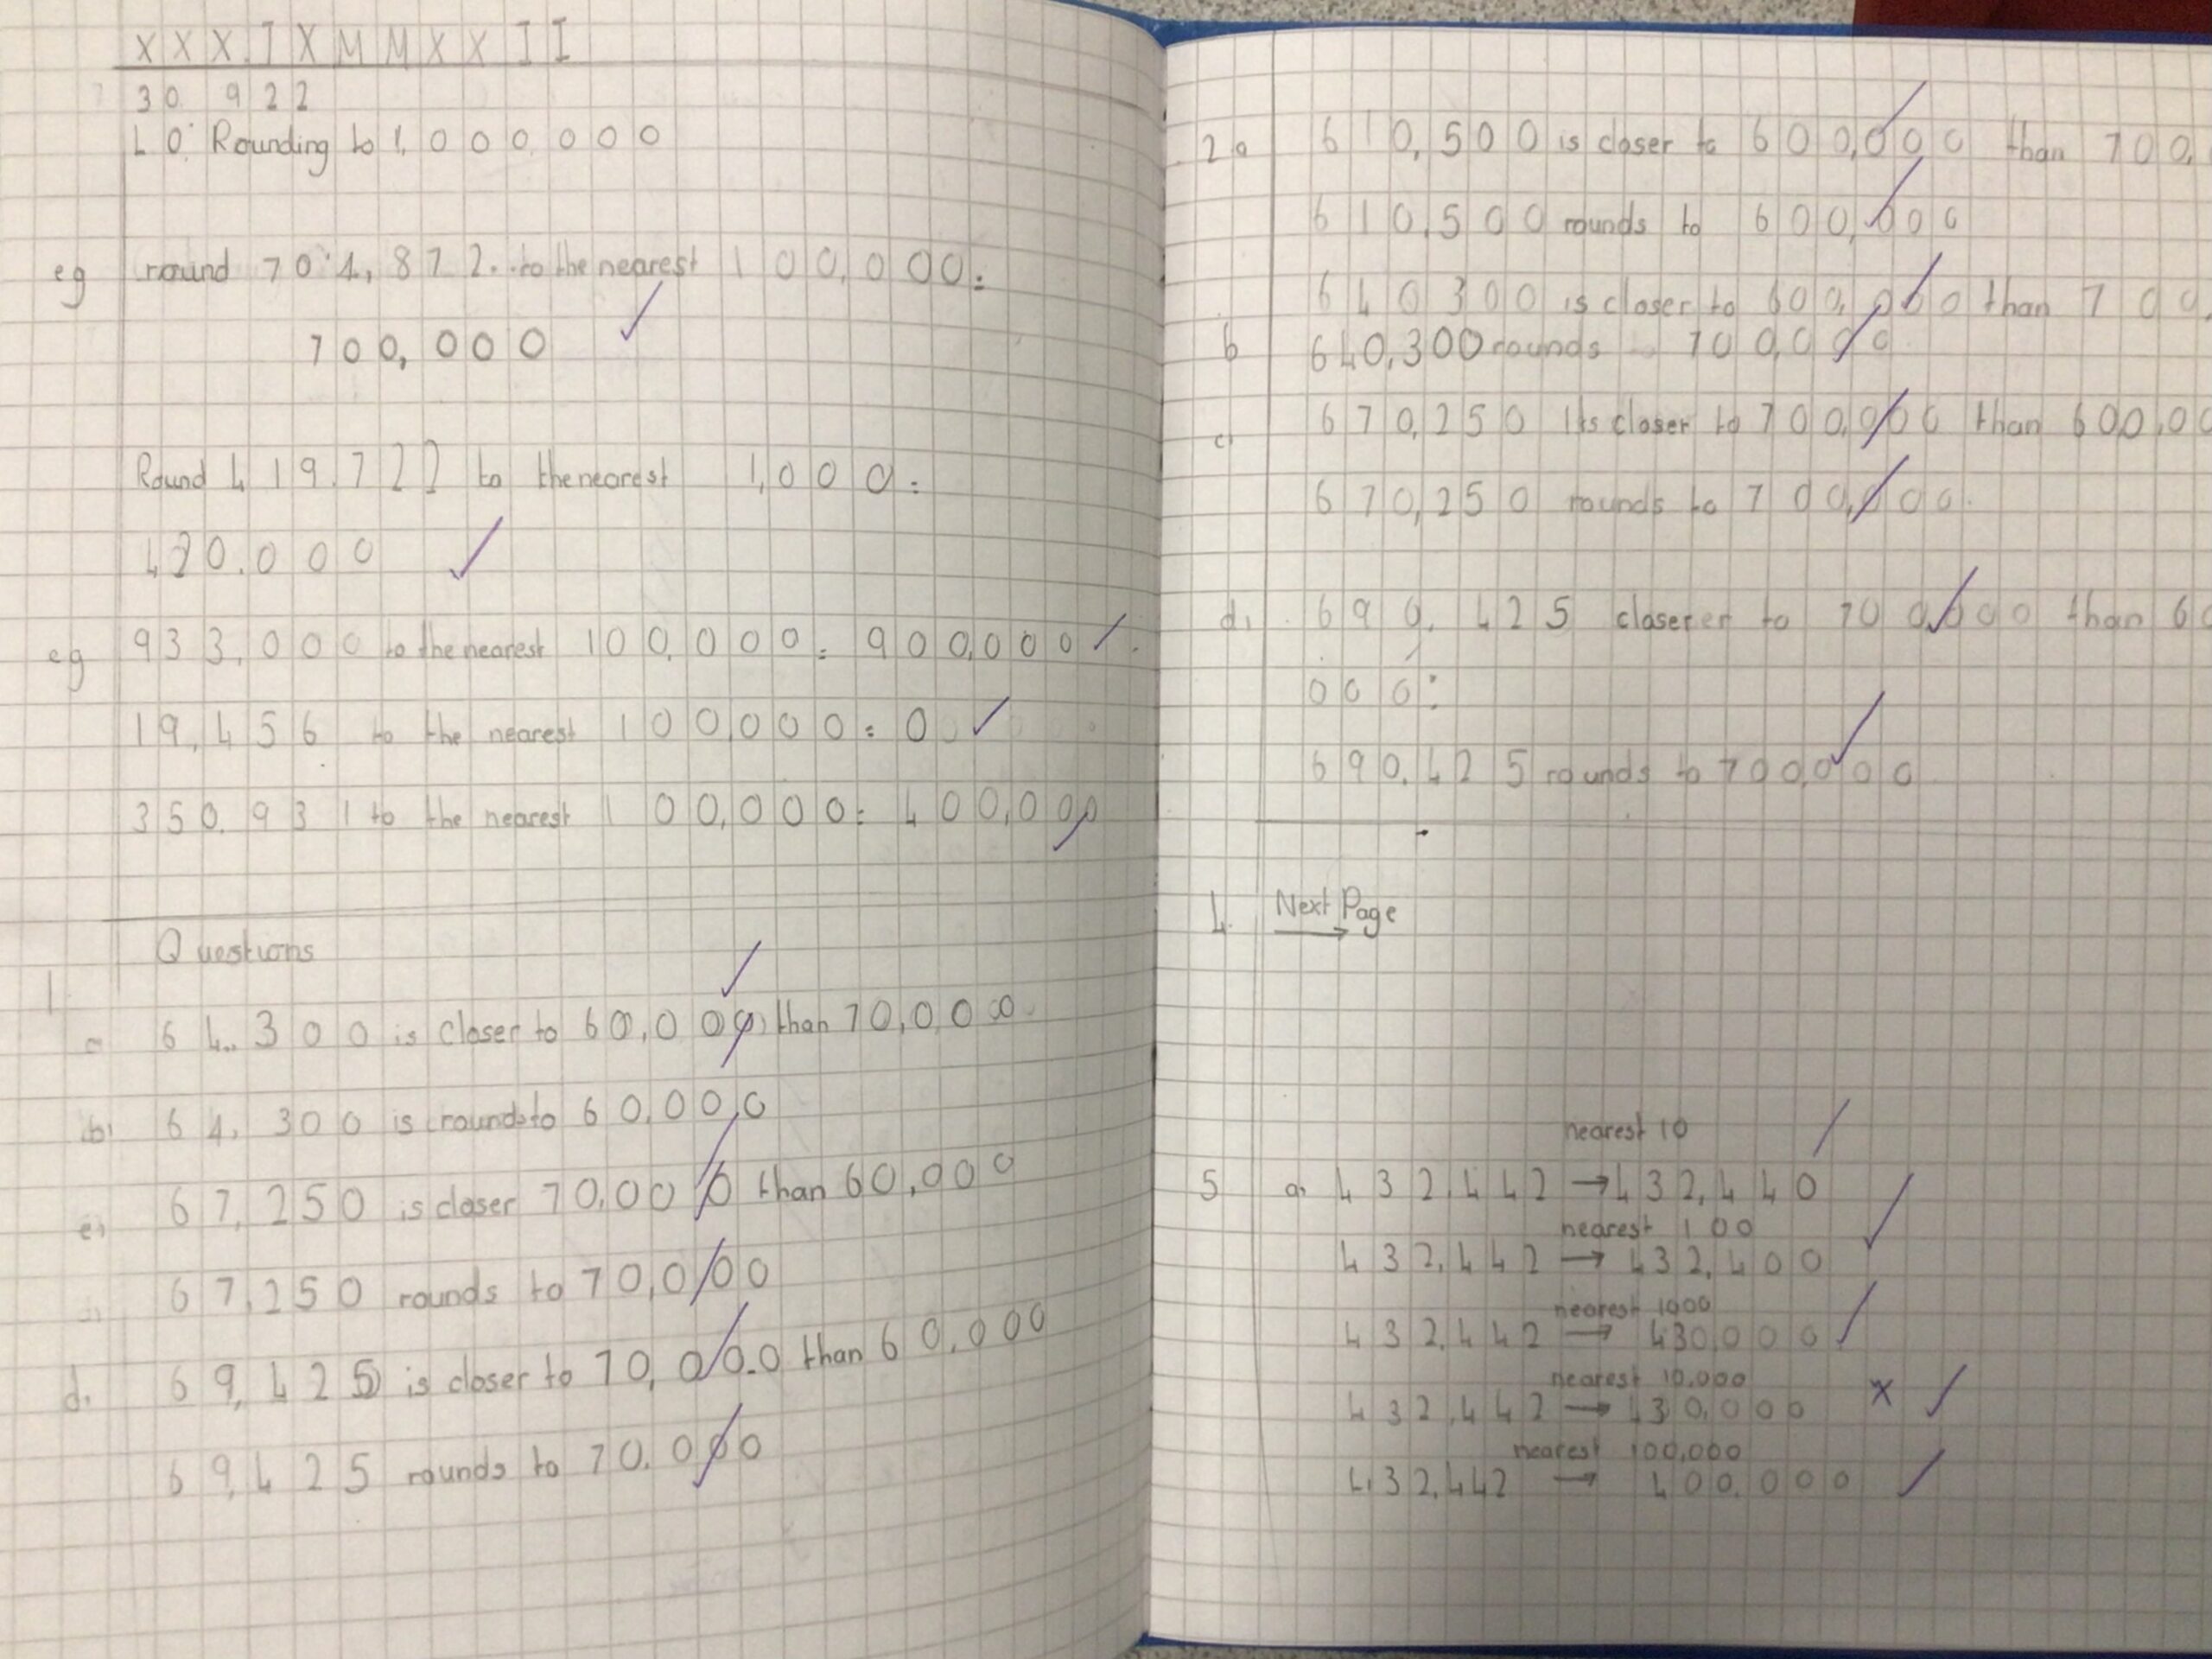 XXX.IXMMXXII
30 9 22
LO: Rounding to 1,000,000
eg round 704,872. to the nearest 100,000:
700,000
Round 419.722 to the nearest 1,000:
420.000
eg 933,000 to the nearest 100,000: 900,000
19,456 to the nearest 100,000: 0
350.931 to the nearest 100,000: 400,000
Questions
1.
a 64.300 is closer to 60,000 than 70,000
b 64,300 is rounds to 60,000
c 67,250 is closer 70,000 than 60,000
67,250 rounds to 70,000
d. 69,425 is closer to 70,000 than 60,000
69,425 rounds to 70,000
2a 610,500 is closer to 600,000 than 700,
610,500 rounds to 600,000
640300 is closer to 600,000 than 700,
b 640,300 rounds 700,000
c 670,250 its closer to 700,000 than 600,00
670,250 rounds to 700,000.
d. 690,425 closerer to 700,000 than 60
000:
690,425 rounds to 700,000
4. Next Page
nearest 10
5 a. 432,442 → 432,440
nearest 100
432,442 → 432,400
nearest 1000
432,442 → 430,000
nearest 10,000
432,442 → 430,000
nearest 100,000
432,442 → 400,000